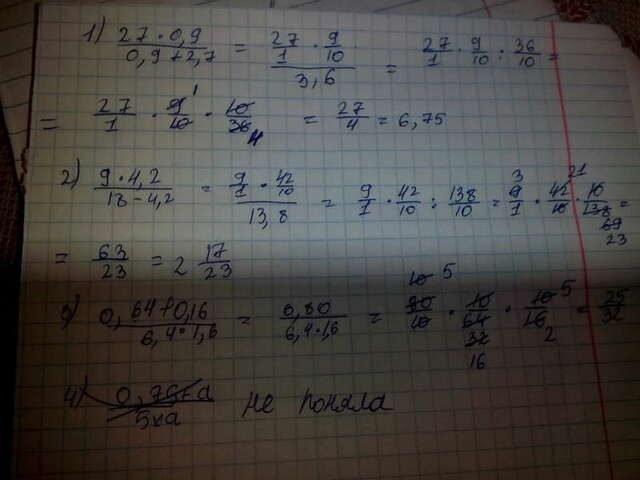 1) (27 · 0,9)/(0,9 + 2,7) = (27/1 · 9/10)/3,6 = 27/1 · 9/10 : 36/10 =
= 27/1 · 9/10 · 10/36 1 4 = 27/4 = 6,75
2) (9 · 4,2)/(18 - 4,2) = (9/1 · 42/10)/13,8 = 9/1 · 42/10 : 138/10 = 9/1 · 42/10 · 10/138 = 3 21 69 23
= 63/23 = 2 17/23
3) (0,64 + 0,16)/(6,4 · 1,6) = 0,80/(6,4 · 1,6) = 80/10 · 10/64 · 10/16 = 25/32 10 5 32 16 5 2
4) (0,76 + a)/(5xa) не поняла